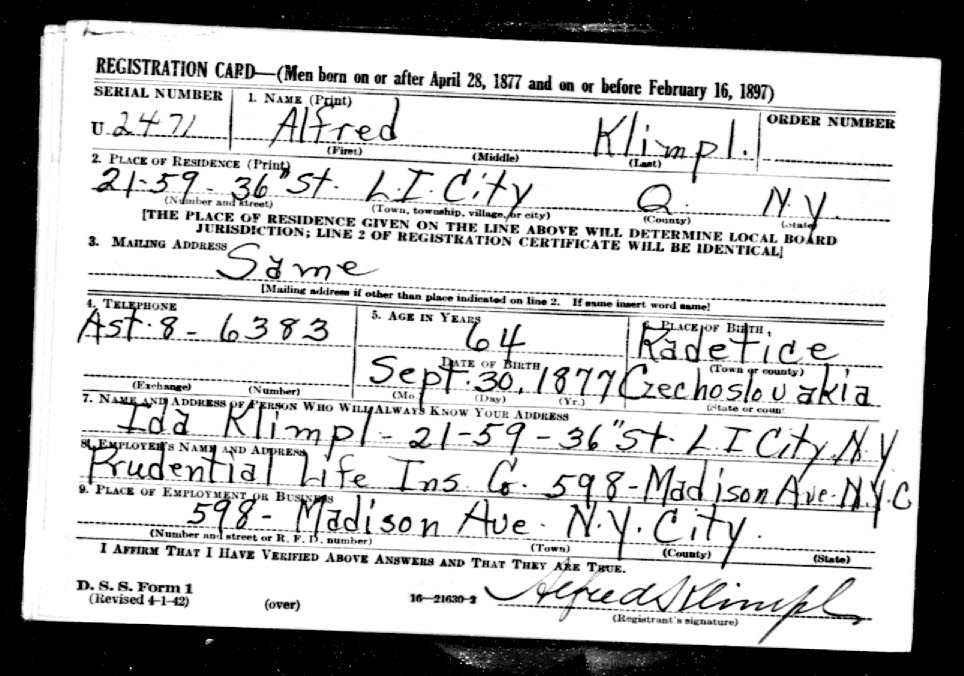 REGISTRATION CARD—(Men born on or after April 28, 1877 and on or before February 16, 1897)
SERIAL NUMBER 1. NAME (Print) ORDER NUMBER
U 2471 Alfred Klimpl.
(First) (Middle) (Last)
2. PLACE OF RESIDENCE (Print)
21-59 - 36" St. L.I. City Q. N.Y.
(Number and street) (Town, township, village, or city) (County) (State)
[THE PLACE OF RESIDENCE GIVEN ON THE LINE ABOVE WILL DETERMINE LOCAL BOARD
JURISDICTION; LINE 2 OF REGISTRATION CERTIFICATE WILL BE IDENTICAL]
3. MAILING ADDRESS
Same
[Mailing address if other than place indicated on line 2. If same insert word same]
4. TELEPHONE 5. AGE IN YEARS PLACE OF BIRTH
Ast. 8 - 6383 64 Radetice
DATE OF BIRTH (Town or county)
Sept. 30, 1877 Czechoslovakia
(Exchange) (Number) (Mo.) (Day) (Yr.) (State or coun
7. NAME AND ADDRESS OF PERSON WHO WILL ALWAYS KNOW YOUR ADDRESS
Ida Klimpl - 21-59 - 36" St. L I City N.Y.
8. EMPLOYER'S NAME AND ADDRESS
Prudential Life Ins Co. 598 - Madison Ave. N.Y.C
9. PLACE OF EMPLOYMENT OR BUSINESS
598 - Madison Ave. N.Y. City.
(Number and street or R. F. D. number) (Town) (County) (State)
I AFFIRM THAT I HAVE VERIFIED ABOVE ANSWERS AND THAT THEY ARE TRUE.
D. S. S. Form 1
(Revised 4-1-42) (over) 16—21630-2 Alfred Klimpl
(Registrant's signature)